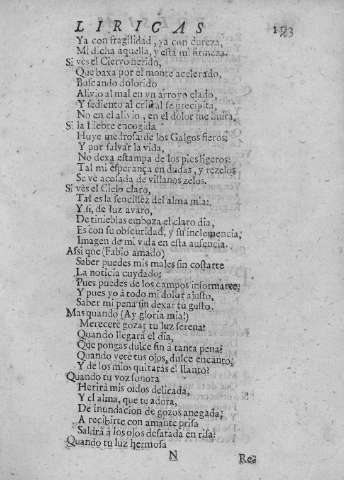 LIRICAS
193
Ya con fragilidad, ya con dureza,
Mi dicha aquella, y esta mi firmeza.
Si ves el Ciervo herido,
Que baxa por el monte acelerado,
Buscando dolorido
Alivio al mal en vn arroyo elado,
Y sediento al cristal se precipita,
No en el alivio, en el dolor me imita.
Si la liebre encogida
Huye medrosa de los Galgos fieros;
Y por salvar la vida,
No dexa estampa de los pies ligeros:
Tal mi esperança en dudas, y rezelos
Se vè acosada de villanos zelos.
Si vès el Cielo claro,
Tal es la sencillèz del alma mia:
Y si, de luz avaro,
De tinieblas emboza el claro dia,
Es con su obscuridad, y su inclemencia,
Imagen de mi vida en esta ausencia.
Assi que (Fabio amado)
Saber puedes mis males sin costarte
La noticia cuydado;
Pues puedes de los campos informarte;
Y pues yo à todo mi dolor ajusto,
Saber mi pena sin dexar tu gusto.
Mas quando (Ay gloria mia!)
Merecerè gozar tu luz serena?
Quando llegarà el dia,
Que pongas dulce fin à tanta pena?
Quando verè tus ojos, dulce encanto,
Y de los mios quitaràs el llanto?
Quando tu voz sonora
Herirà mis oidos delicada,
Y el alma, que te adora,
De inundacion de gozos anegada;
A recibirte con amante prisa
Saldrà à los ojos desatada en risa?
Quando tu luz hermosa
N
Re-